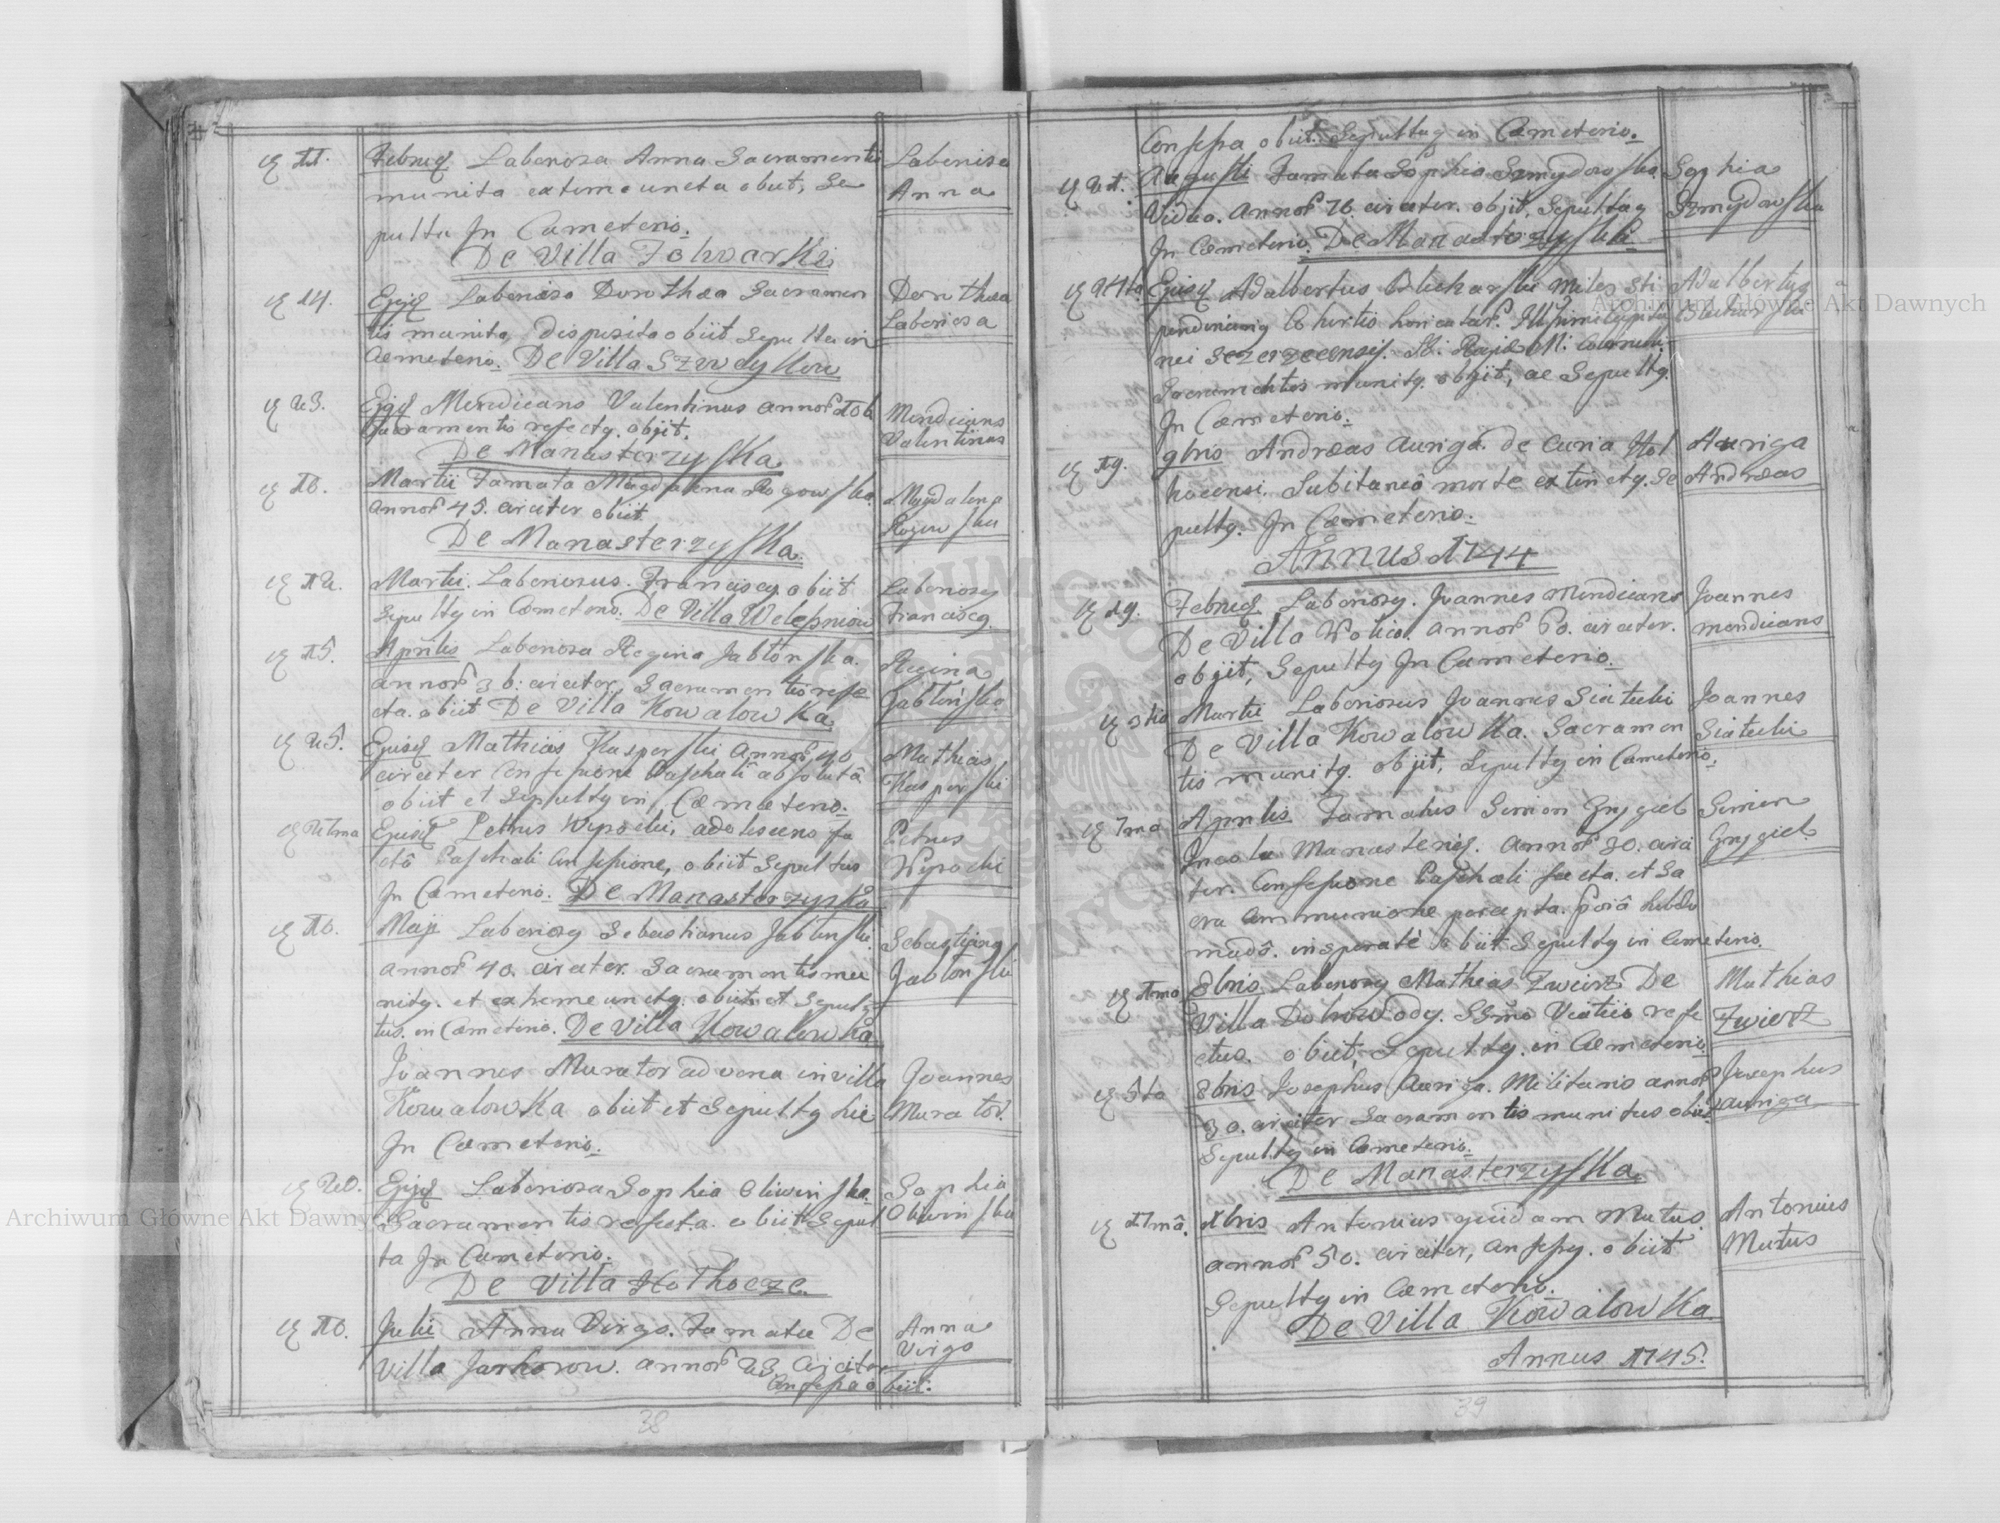 Februar Laboriosa Anna Sacramentis
munita extreme uncta obiit, Se
pulta In Cameterio.
De Villa Folwarki
Laboriosa
Anna
14. Ejusd Laboriosa Dorothea Sacramen
tis munita, disposita obiit Sepulta in
Cemeterio. De Villa Szweykow
Dorothea
Laboriosa
23. Ejusd Mendicans Valentinus annor 106
Sacramentis refectq. obijt.
De Manasterzyska
Mendicans
Valentinus
10. Martii Famata Magdalena Rogowska
annor 45. circiter obiit.
De Manasterzyska.
Magdalena
Rogowska
12. Martii. Laboriosus. Franciscq. obiit
Sepultq in Cœmeterio. De Villa Welesniow
Laboriosq
Franciscq.
15. Aprilis Laboriosa Regina Jabłonska.
annor 36: circiter, Sacramentis refe
cta. obiit De Villa Kowalowka
Regina
Jabłońska
25. Ejusd Mathias Kasperski annor 40
circiter Confessione Paschali absolutâ
obiit et Sepultq in Cœmeterio.
Mathias
Kasperski
27ma Ejusd Petrus Wysocki, adolescens fa
ctâ Paschali Confessione, obiit Sepultus
In Cœmeterio. De Manasterzyska
Petrus
Wysocki
10. Maji Laboriosq Sebastianus Jabłonski.
annor 40. circiter. Sacramentis mu
nitq. et extreme unctq. obiit et Sepul
tus. in Cœmeterio. De Villa Kowalowka
Sebastianq
Jabłonski
Joannes Murator advena in villa
Kowalowka obiit et Sepultq hic
In Cœmeterio.
Joannes
Murator.
20. Ejusd Laboriosa Sophia Oliwinska.
Sacramentis refecta. obiit Sepul
ta In Cœmeterio.
De Villa Hothocze.
Sophia
Oliwinska
10. Julii Anna Virgo. Famata De
Villa Jarhorow. annor 23 circiter
Confessa obiit.
Anna
Virgo
38
Confessa obiit. Sepultaq in Cœmeterio.
21. Augusti Famata Sophia Szmydowska.
Vidua. annor 76. circiter. objit, Sepultaq
In Cœmeterio. De Manasterzyska
Sophia
Szmydowska
24ta Ejusd Adalbertus Miles Sti
pendiariq Cohortis
nei
Sacramentis munitq. objit, ac Sepultq.
In Cœmeterio.
Adalbertq
19. 9bris Andreas Auriga. de Curia Hot
hocensi. Subitaneâ morte extinctq. Se
pultq. In Cœmeterio.
Auriga
Andreas
Annus 1744
19. Februar Laboriosq. Joannes Mendicans
De Villa Wolica. annor 60. circiter.
objit, Sepultq In Cœmeterio.
Joannes
mendicans
3tia Martii Laboriosus Joannes Siatecki
De Villa Kowalowka. Sacramen
tis munitq. objit, Sepultq in Cœmeterio.
Joannes
Siatecki
7ma Aprilis Famatus Simon Grygiel
Incola Manasteriq. annor 70. circi
ter. Confessione Paschali facta. et Sa
cra Communione percepta. hebdo
madâ. insperatè obiit Sepultq in Cemeterio.
Simon
Grygiel.
8bris Laboriosq Mathias Zwierz De
Villa Dobrowody. SSmo Viatico refe
ctus. obiit, Sepultq. in Cœmeterio.
Mathias
Zwierz
5ta 8bris Josephus Auriga. Militaris annor
30. circiter Sacramentis munitus obiit
Sepultq in Cœmeterio.
De Manasterzyska.
Josephus
auriga
Xbris Antonius quidam Mutus.
annor 50. circiter, Confessq. obiit
Sepultq in Cœmeterio.
De Villa Kowalowka.
Antonius
Mutus
Annus 1745.
39
Archiwum Główne Akt Dawnych
Archiwum Główne Akt Dawnych